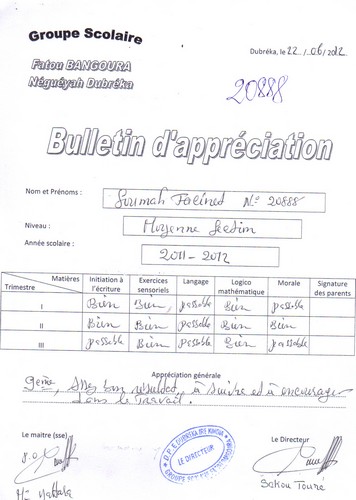 Groupe Scolaire
Dubréka, le 22 / 06 / 2012
Fatou BANGOURA
Néguéyah Dubréka
20888
Bulletin d'appréciation
Nom et Prénoms : Soumah N° 20888
Niveau : Moyenne Section
Année scolaire : 2011-2012
Matières Initiation à l'écriture Exercices sensoriels Langage Logico mathématique Morale Signature des parents
Trimestre
I Bien Bien passable Bien passable
II Bien Bien passable Bien Bien
III passable Bien passable Bien passable
Appréciation générale
9eme, Assez bon à suivre et à encourager
dans le travail.
Le maitre (sse)
Le Directeur
P.O
LE DIRECTEUR
Mme
Sakou Touré